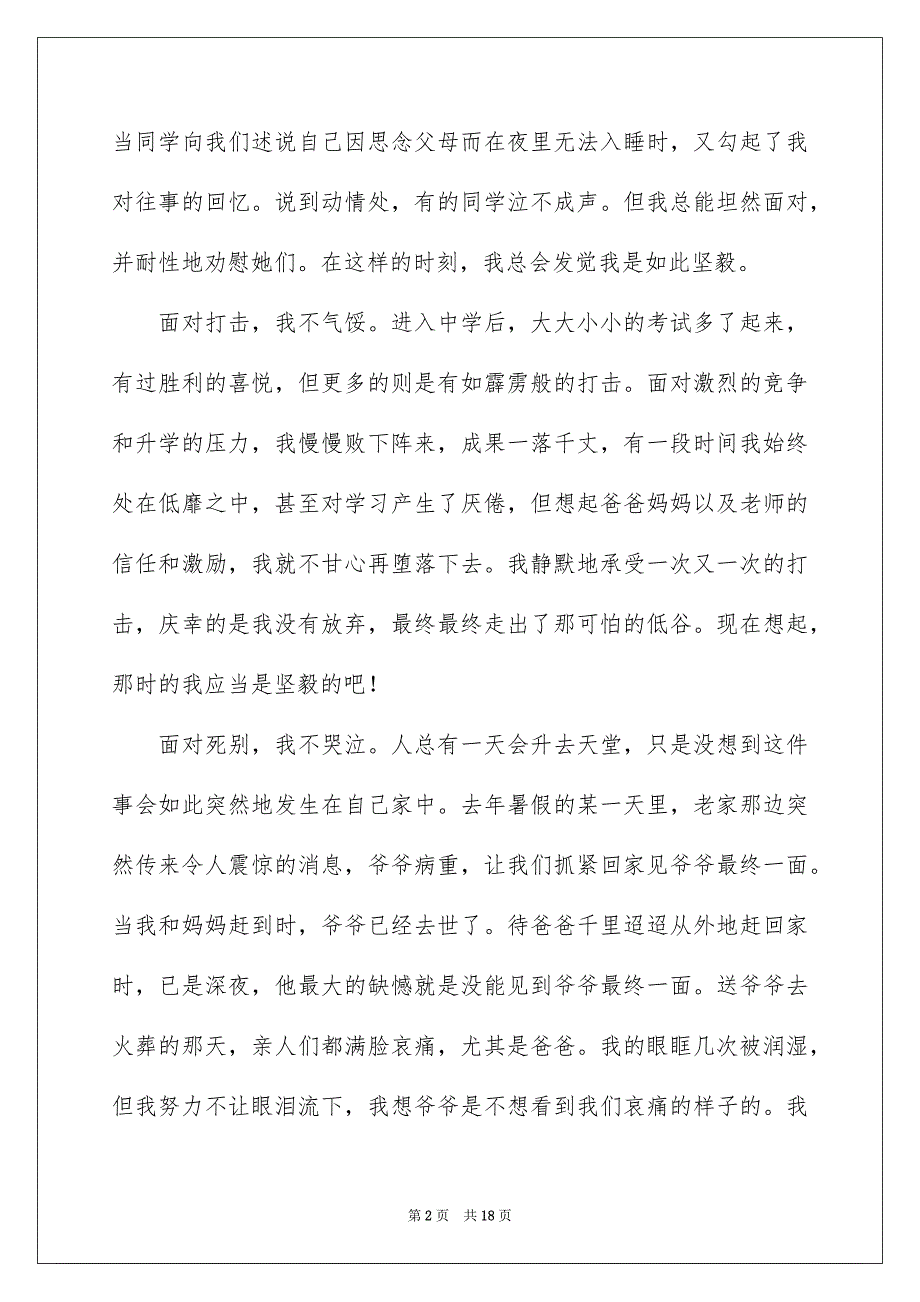 当同学向我们述说自己因思念父母而在夜里无法入睡时，又勾起了我
对往事的回忆。说到动情处，有的同学泣不成声。但我总能坦然面对，
并耐性地劝慰她们。在这样的时刻，我总会发觉我是如此坚毅。
面对打击，我不气馁。进入中学后，大大小小的考试多了起来，
有过胜利的喜悦，但更多的则是有如霹雳般的打击。面对激烈的竞争
和升学的压力，我慢慢败下阵来，成果一落千丈，有一段时间我始终
处在低靡之中，甚至对学习产生了厌倦，但想起爸爸妈妈以及老师的
信任和激励，我就不甘心再堕落下去。我静默地承受一次又一次的打
击，庆幸的是我没有放弃，最终最终走出了那可怕的低谷。现在想起，
那时的我应当是坚毅的吧！
面对死别，我不哭泣。人总有一天会升去天堂，只是没想到这件
事会如此突然地发生在自己家中。去年暑假的某一天里，老家那边突
然传来令人震惊的消息，爷爷病重，让我们抓紧回家见爷爷最终一面。
当我和妈妈赶到时，爷爷已经去世了。待爸爸千里迢迢从外地赶回家
时，已是深夜，他最大的缺憾就是没能见到爷爷最终一面。送爷爷去
火葬的那天，亲人们都满脸哀痛，尤其是爸爸。我的眼眶几次被润湿，
但我努力不让眼泪流下，我想爷爷是不想看到我们哀痛的样子的。我
第 2 页 共 18 页